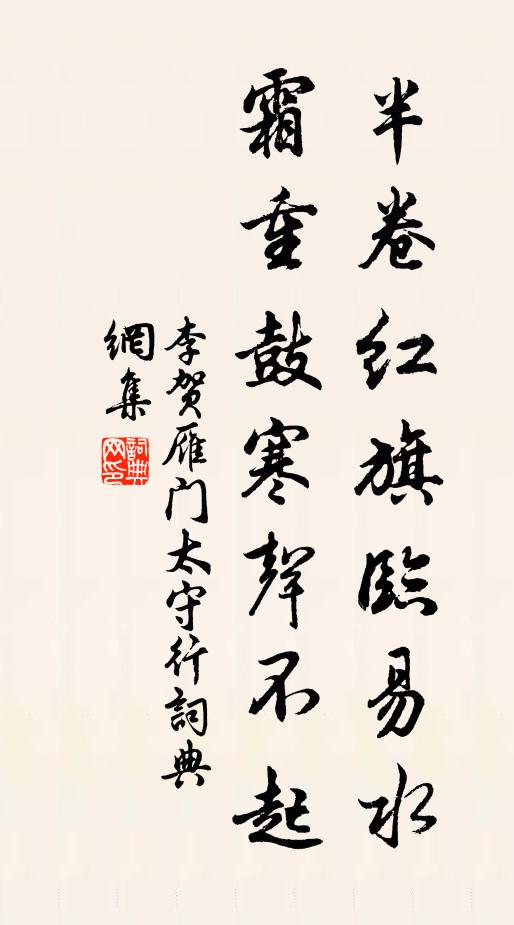 半卷红旗臨易水
霜重鼓寒聲不起
李贺雁门太守行詞典
網集
詞典网印